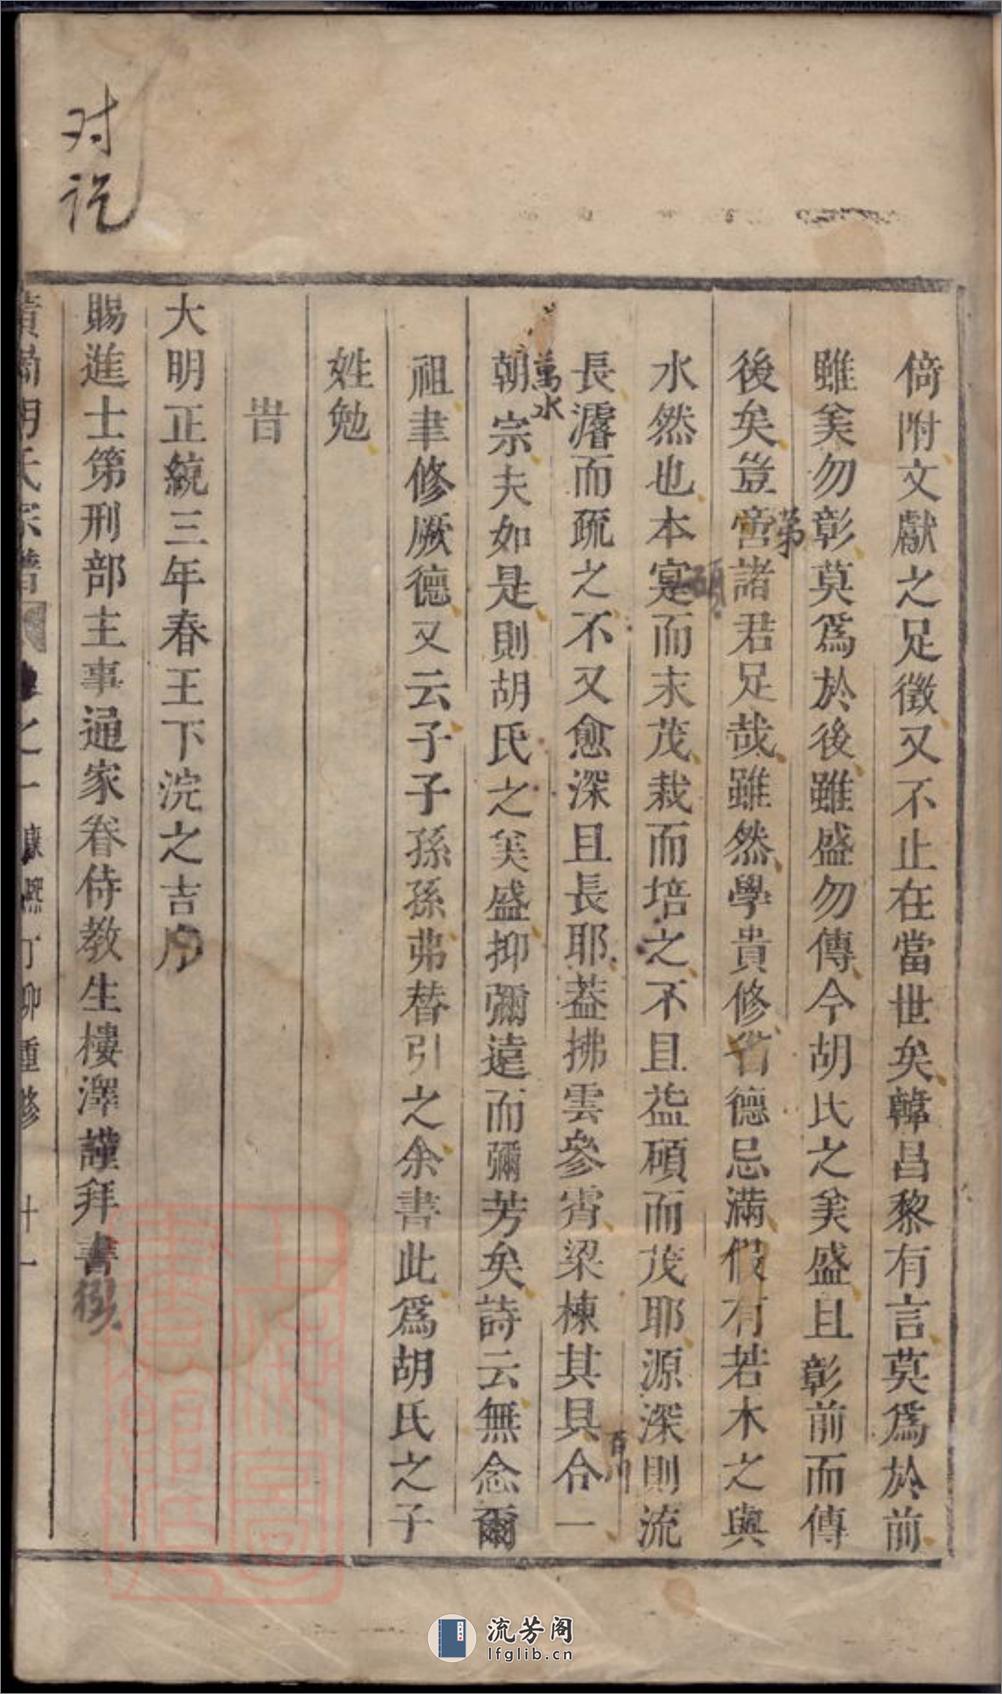 倚附文獻之足徵又不止在當世矣韓昌黎有言莫爲於前
雖美勿彰莫爲於後雖盛勿傳今胡氏之美盛且彰前而傳
後矣豈啻諸君足哉雖然學貴修省德忌滿假有若木之與
第
水然也本寔而末茂栽而培之不且益碩而茂耶源深則流
碩
長濬而疏之不又愈深且長耶葢拂雲參霄梁棟其具合一
百川
朝宗夫如是則胡氏之美盛抑彌遠而彌芳矣詩云無念爾
萬水
祖聿修厥德又云子子孫孫弗替引之余書此爲胡氏之子
姓勉
旹
大明正統三年春王下浣之吉
賜進士第刑部主事通家眷侍教生樓澤謹拜書
胡氏宗譜 之一 丁卯重修 十一
对讫
上海圖書館藏
流芳阁
lfglib.cn